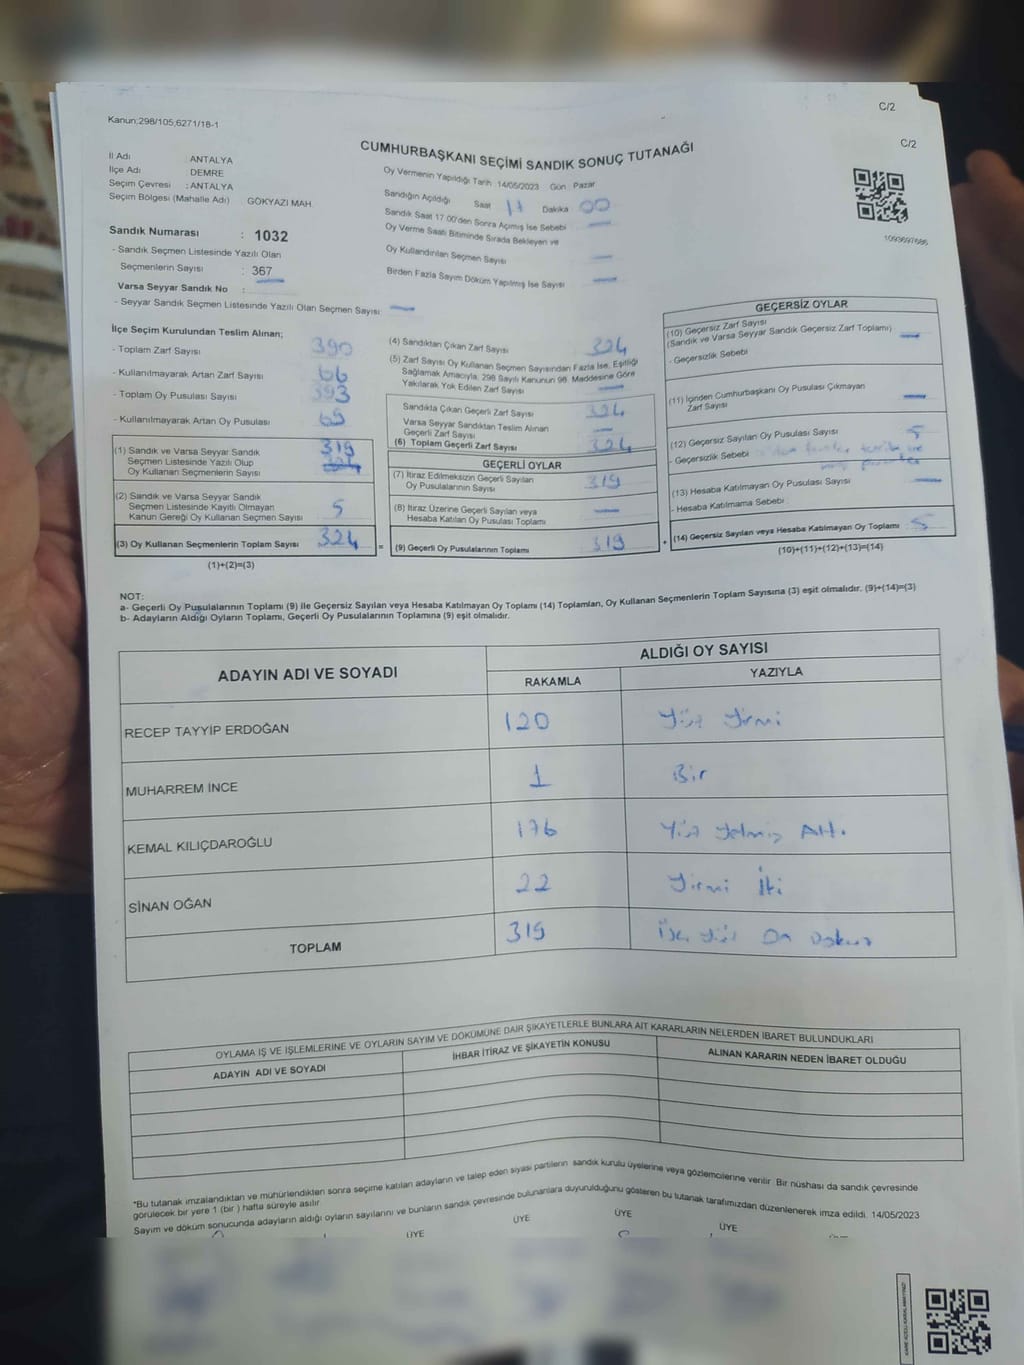 C/2
Kanun:298/105,6271/18-1
C/2
CUMHURBAŞKANI SEÇİMİ SANDIK SONUÇ TUTANAĞI
İl Adı ANTALYA
İlçe Adı DEMRE
Seçim Çevresi : ANTALYA
Seçim Bölgesi (Mahalle Adı) GÖKYAZI MAH.
Sandık Numarası : 1032
- Sandık Seçmen Listesinde Yazılı Olan
Seçmenlerin Sayısı : 367
Varsa Seyyar Sandık No :
- Seyyar Sandık Seçmen Listesinde Yazılı Olan Seçmen Sayısı —
Oy Vermenin Yapıldığı Tarih 14/05/2023 Gün Pazar
Sandığın Açıldığı Saat 17 Dakika 00
Sandık Saat 17.00'den Sonra Açımış İse Sebebi —
Oy Verme Saati Bitiminde Sırada Bekleyen ve
Oy Kullandırılan Seçmen Sayısı —
Birden Fazla Sayım Döküm Yapılmış İse Sayısı —
1093697686
İlçe Seçim Kurulundan Teslim Alınan;
- Toplam Zarf Sayısı 390
- Kullanılmayarak Artan Zarf Sayısı 66
- Toplam Oy Pusulası Sayısı 393
- Kullanılmayarak Artan Oy Pusulası 69
(1) Sandık ve Varsa Seyyar Sandık 319
Seçmen Listesinde Yazılı Olup
Oy Kullanan Seçmenlerin Sayısı
(2) Sandık ve Varsa Seyyar Sandık
Seçmen Listesinde Kayıtlı Olmayan 5
Kanun Gereği Oy Kullanan Seçmen Sayısı
(3) Oy Kullanan Seçmenlerin Toplam Sayısı 324
(1)+(2)=(3)
(4) Sandıktan Çıkan Zarf Sayısı 324
(5) Zarf Sayısı Oy Kullanan Seçmen Sayısından Fazla İse, Eşitliği
Sağlamak Amacıyla, 298 Sayılı Kanunun 98. Maddesine Göre
Yakılarak Yok Edilen Zarf Sayısı —
Sandıkta Çıkan Geçerli Zarf Sayısı 324
Varsa Seyyar Sandıktan Teslim Alınan
Geçerli Zarf Sayısı —
(6) Toplam Geçerli Zarf Sayısı 324
GEÇERLİ OYLAR
(7) İtiraz Edilmeksizin Geçerli Sayılan
Oy Pusulalarının Sayısı 319
(8) İtiraz Üzerine Geçerli Sayılan veya
Hesaba Katılan Oy Pusulası Toplamı —
= (9) Geçerli Oy Pusulalarının Toplamı 319 +
GEÇERSİZ OYLAR
(10) Geçersiz Zarf Sayısı
(Sandık ve Varsa Seyyar Sandık Geçersiz Zarf Toplamı) —
- Geçersizlik Sebebi
(11) İçinden Cumhurbaşkanı Oy Pusulası Çıkmayan
Zarf Sayısı —
(12) Geçersiz Sayılan Oy Pusulası Sayısı 5
- Geçersizlik Sebebi
(13) Hesaba Katılmayan Oy Pusulası Sayısı —
- Hesaba Katılmama Sebebi :
(14) Geçersiz Sayılan veya Hesaba Katılmayan Oy Toplamı 5
(10)+(11)+(12)+(13)=(14)
NOT:
a- Geçerli Oy Pusulalarının Toplamı (9) ile Geçersiz Sayılan veya Hesaba Katılmayan Oy Toplamı (14) Toplamları, Oy Kullanan Seçmenlerin Toplam Sayısına (3) eşit olmalıdır. (9)+(14)=(3)
b- Adayların Aldığı Oyların Toplamı, Geçerli Oy Pusulalarının Toplamına (9) eşit olmalıdır.
ADAYIN ADI VE SOYADI ALDIĞI OY SAYISI
RAKAMLA YAZIYLA
RECEP TAYYİP ERDOĞAN 120 Yüz Yirmi
MUHARREM İNCE 1 Bir
KEMAL KILIÇDAROĞLU 176 Yüz Yetmiş Altı
SİNAN OĞAN 22 Yirmi İki
TOPLAM 319 Üç Yüz On Dokuz
OYLAMA İŞ VE İŞLEMLERİNE VE OYLARIN SAYIM VE DÖKÜMÜNE DAİR ŞİKAYETLERLE BUNLARA AİT KARARLARIN NELERDEN İBARET BULUNDUKLARI
ADAYIN ADI VE SOYADI İHBAR İTİRAZ VE ŞİKAYETİN KONUSU ALINAN KARARIN NEDEN İBARET OLDUĞU
*Bu tutanak imzalandıktan ve mühürlendikten sonra seçime katılan adayların ve talep eden siyasi partilerin sandık kurulu üyelerine veya gözlemcilerine verilir. Bir nüshası da sandık çevresinde
görülecek bir yere 1 (bir) hafta süreyle asılır
Sayım ve döküm sonucunda adayların aldığı oyların sayılarını ve bunların sandık çevresinde bulunanlara duyurulduğunu gösteren bu tutanak tarafımızdan düzenlenerek imza edildi. 14/05/2023
ÜYE ÜYE ÜYE ÜYE